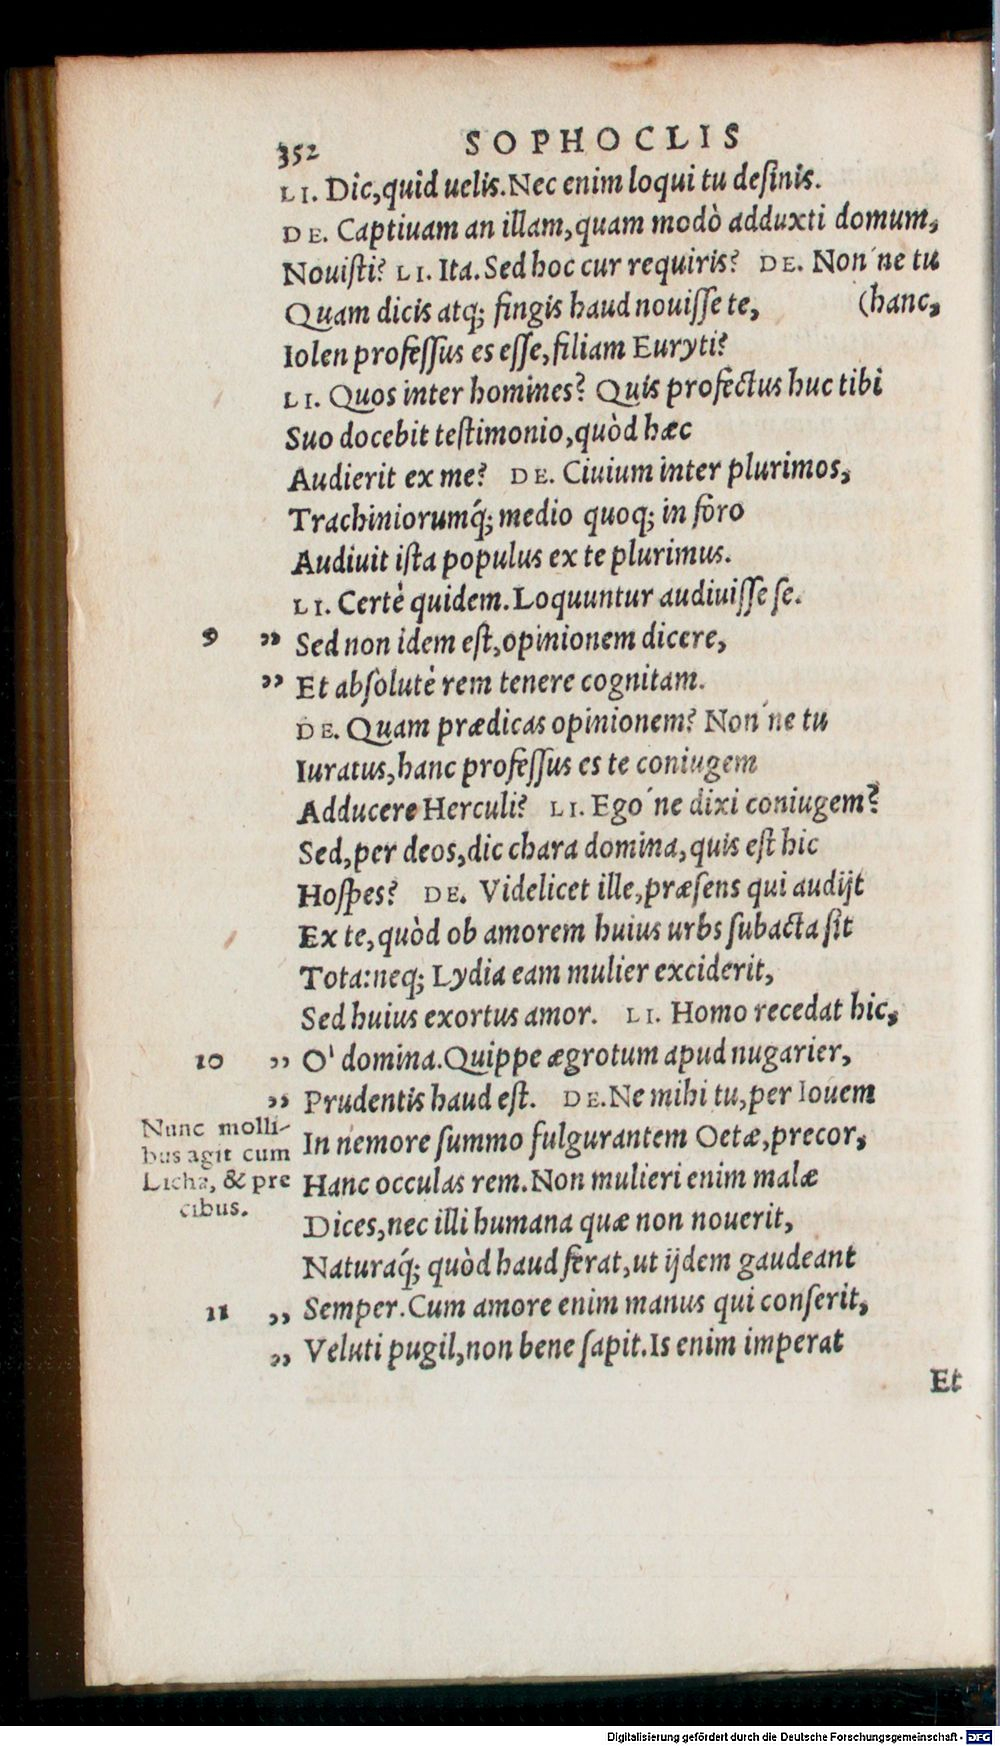 352 SOPHOCLIS
LI. Dic,quid uelis.Nec enim loqui tu deſinis.
DE. Captiuam an illam,quam modò adduxti domum,
Nouiſti? LI. Ita. Sed hoc cur requiris? DE. Non´ne tu
Quam dicis atq; fingis haud nouiſſe te, (hanc,
Iolen profeſſus es eſſe,filiam Euryti?
LI. Quos inter homines? Quis profectus huc tibi
Suo docebit teſtimonio,quòd hæc
Audierit ex me? DE. Ciuium inter plurimos,
Trachiniorumq́; medio quoq; in foro
Audiuit iſta populus ex te plurimus.
LI. Certè quidem. Loquuntur audiuiſſe ſe.
9 ” Sed non idem eſt,opinionem dicere,
” Et abſolutè rem tenere cognitam.
DE. Quam prædicas opinionem? Non´ne tu
Iuratus,hanc profeſſus es te coniugem
Adducere Herculi? LI. Ego´ne dixi coniugem?
Sed,per deos,dic chara domina,quis eſt hic
Hoſpes? DE. Videlicet ille,præſens qui audijt
Ex te,quòd ob amorem huius urbs ſubacta ſit
Tota:neq; Lydia eam mulier exciderit,
Sed huius exortus amor. LI. Homo recedat hic,
10 ” O' domina.Quippe ægrotum apud nugarier,
” Prudentis haud eſt. DE.Ne mihi tu,per Iouem
In nemore ſummo fulgurantem Oetæ,precor,
Hanc occulas rem.Non mulieri enim malæ
Dices,nec illi humana quæ non nouerit,
Naturaq́; quòd haud ferat,ut ijdem gaudeant
11 ” Semper.Cum amore enim manus qui conſerit,
” Veluti pugil,non bene ſapit.Is enim imperat
Et
Nunc molli-
bus agit cum
Licha, & pre
cibus.
Digitalisierung gefördert durch die Deutsche Forschungsgemeinschaft - DFG